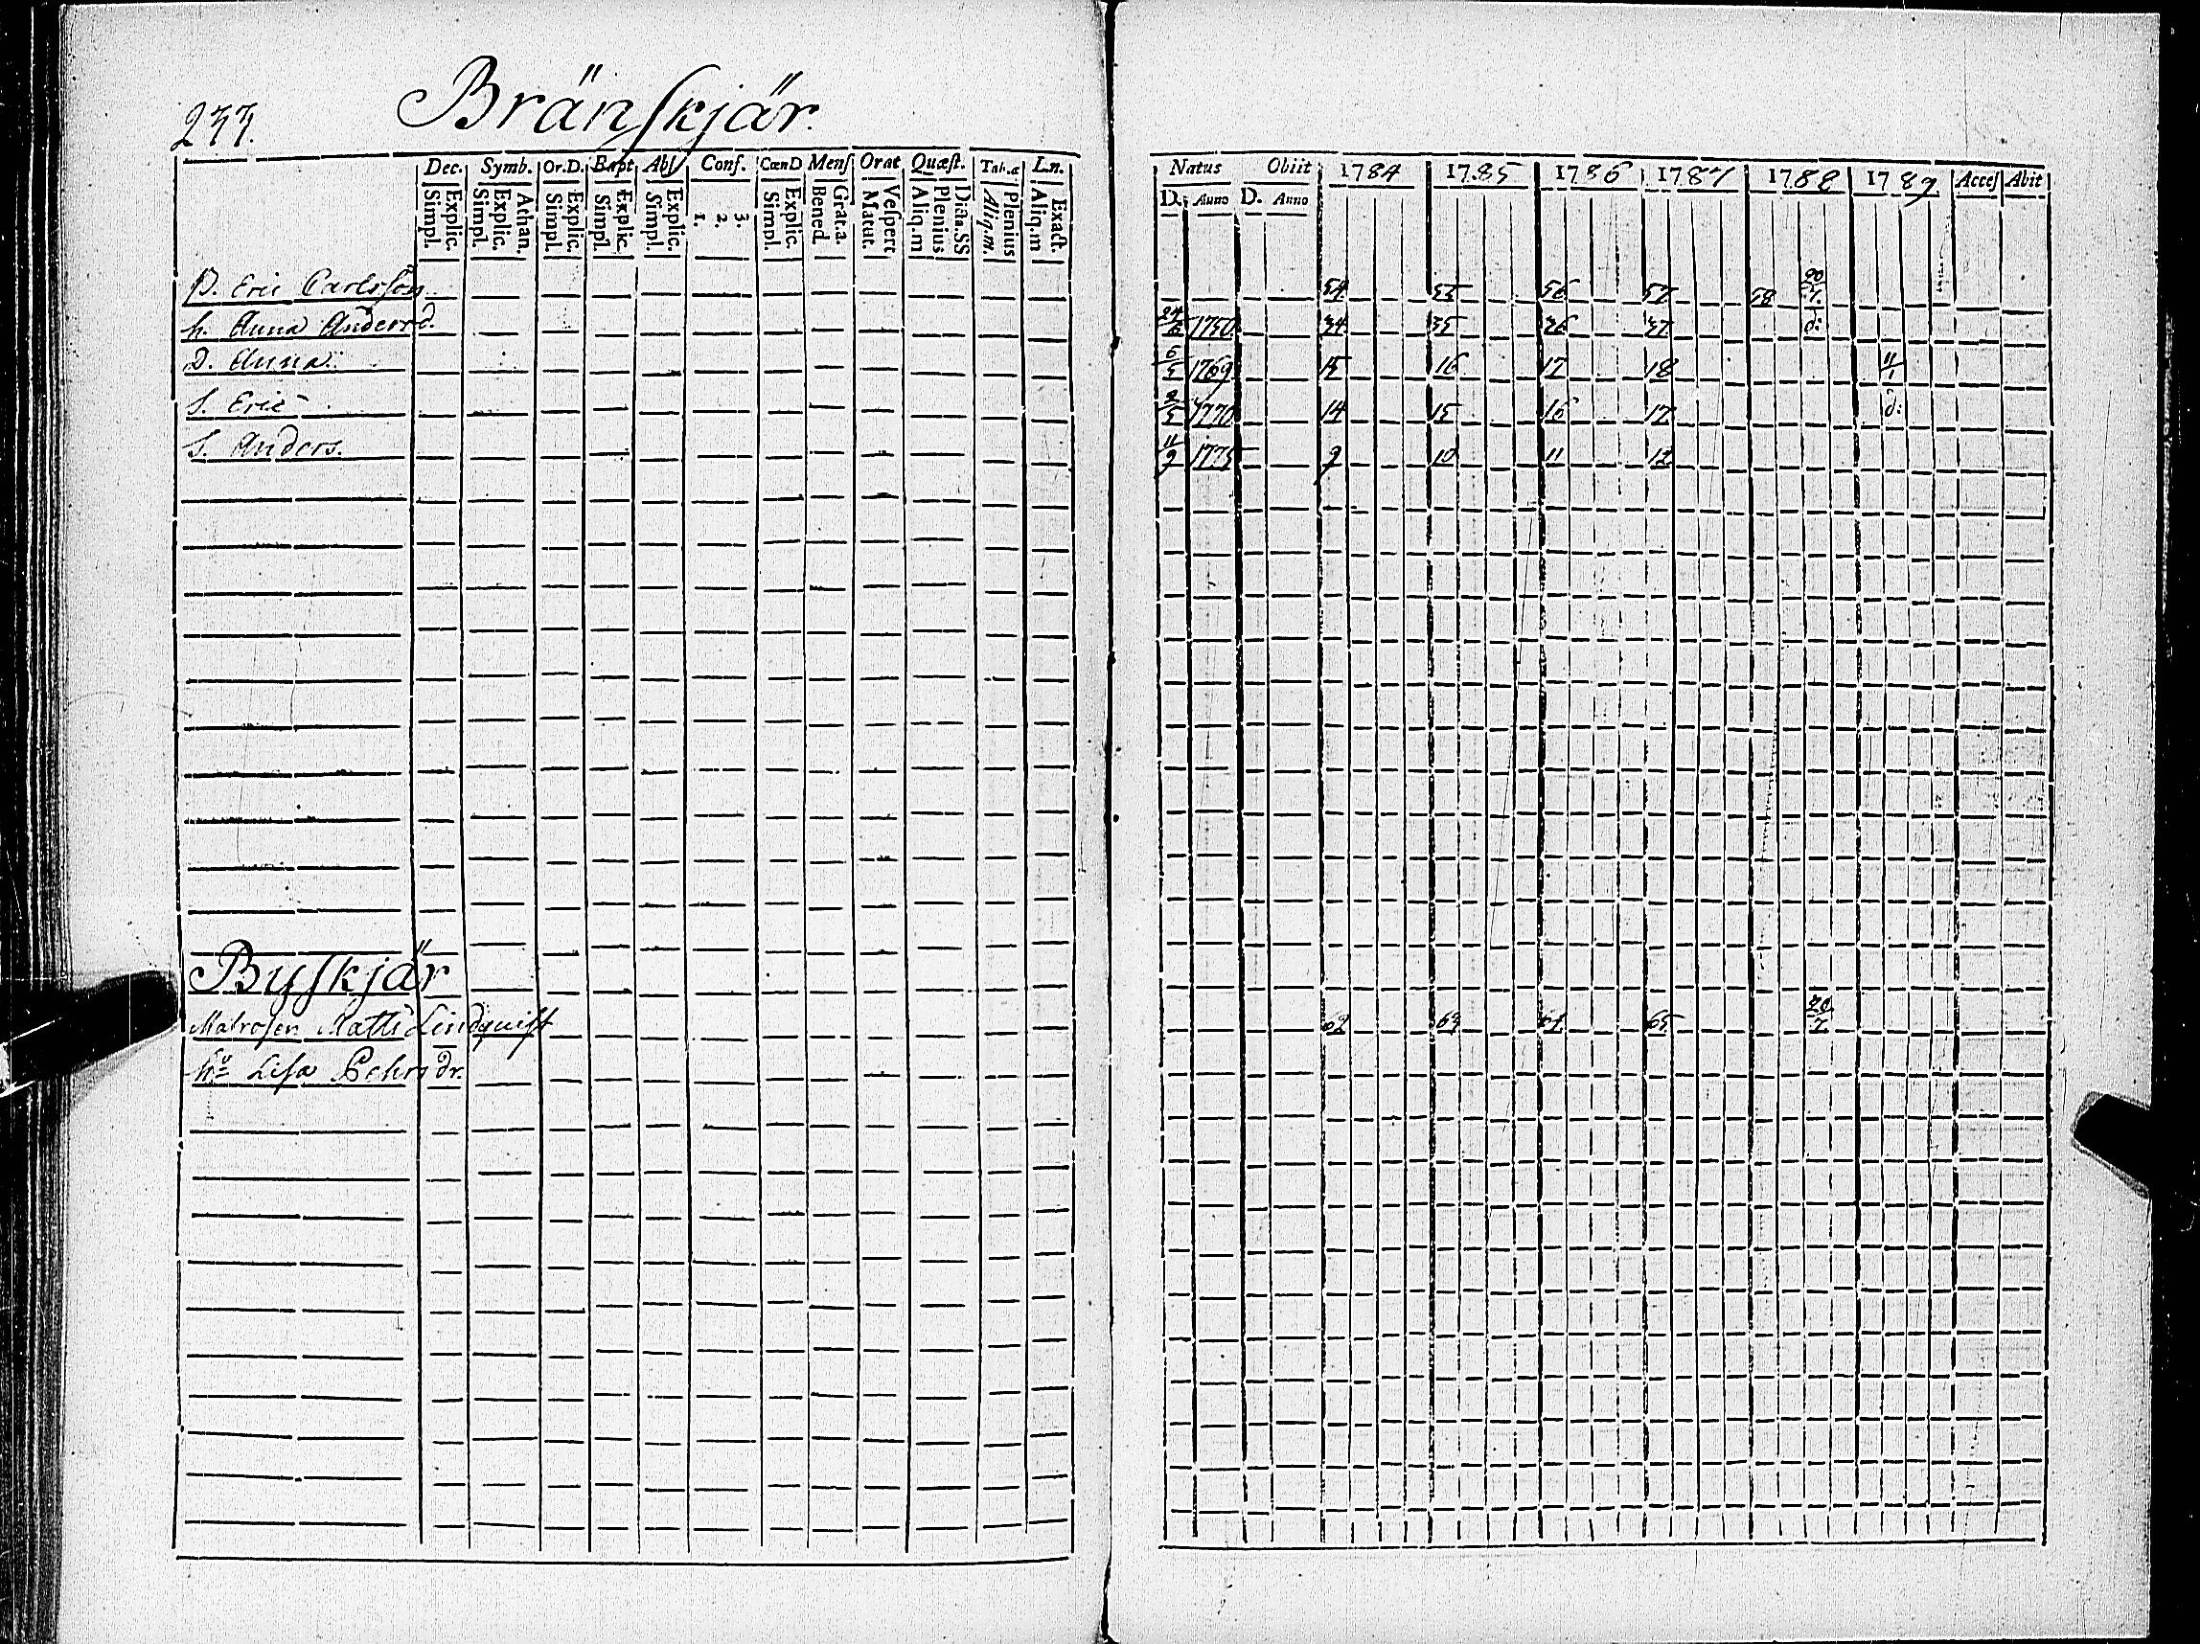 Bränskjär.
233.
Dec. Symb. Or.D. Bapt. Abs. Conf. CœnD Mens Orat Quæst. Tab.æ Ln.
Explic. Simpl. Athan. Explic. Simpl. Explic. Simpl. Explic. Simpl. Explic. Simpl. 3. 2. 1. Explic. Simpl. Grat.a. Bened. Vespert Matut. Dicta.SS Plenius Aliq.m Plenius Aliq.m. Exact. Aliq.m
Natus Obiit 1784 1785 1786 1787 1788 1789 Acces Abit
D. Anno D. Anno
B. Eric Carlsson 54 55 56 57 58
h. Anna Andersd. 1750 34 35 36 37 d:
D. Anna 6/5 1769 15 16 17 18 11/1
S. Eric 1770 14 15 16 17 d:
S. Anders. 11/9 1775 9 10 11 12
Byskjär
Matrosen Matts Lindquist 62 63 64 65 20/7
hu Lisa Pehrsdr.